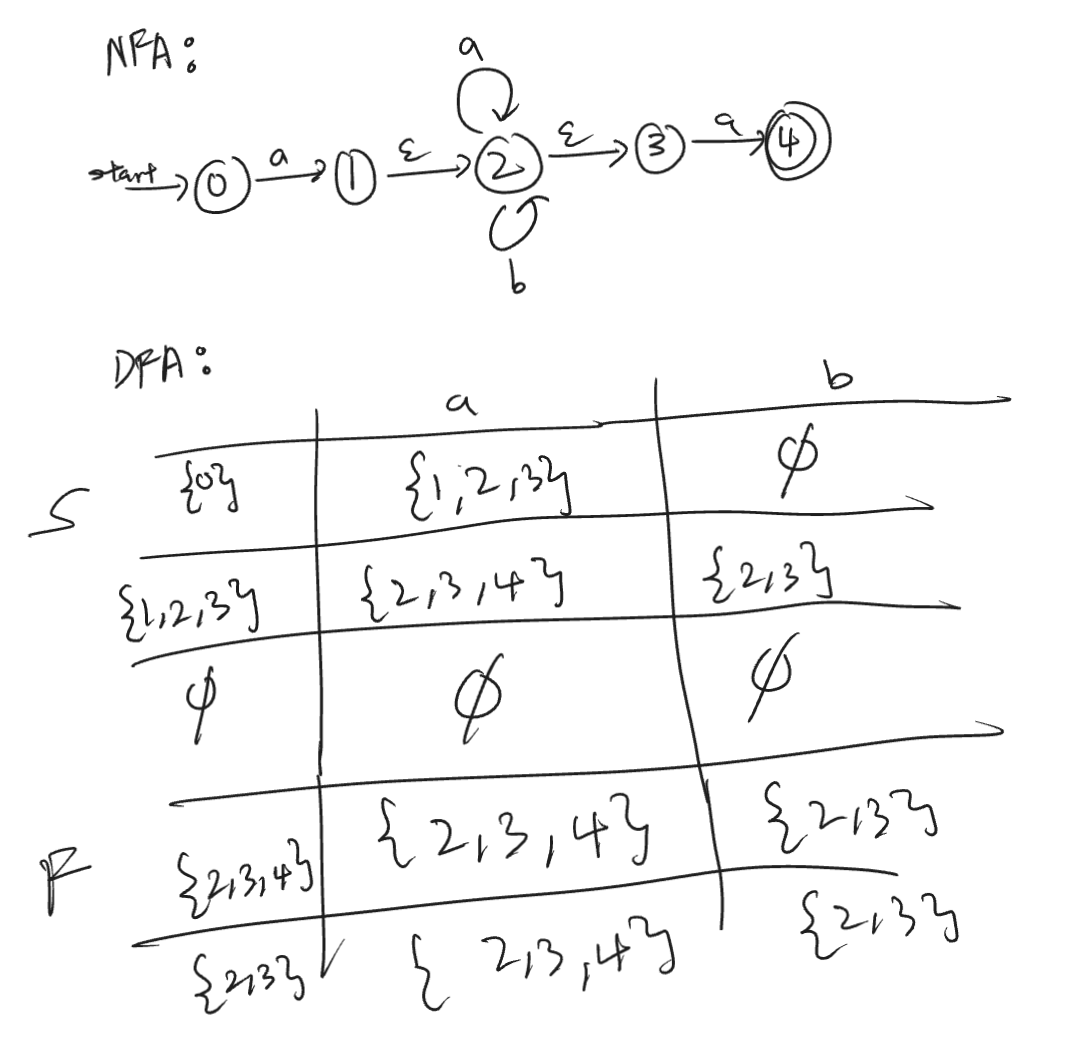 NFA:
a
start 0 a 1 ε 2 ε 3 a 4
b
DFA:
a b
S {0} {1,2,3} ∅
{1,2,3} {2,3,4} {2,3}
∅ ∅ ∅
F {2,3,4} {2,3,4} {2,3}
{2,3} {2,3,4} {2,3}